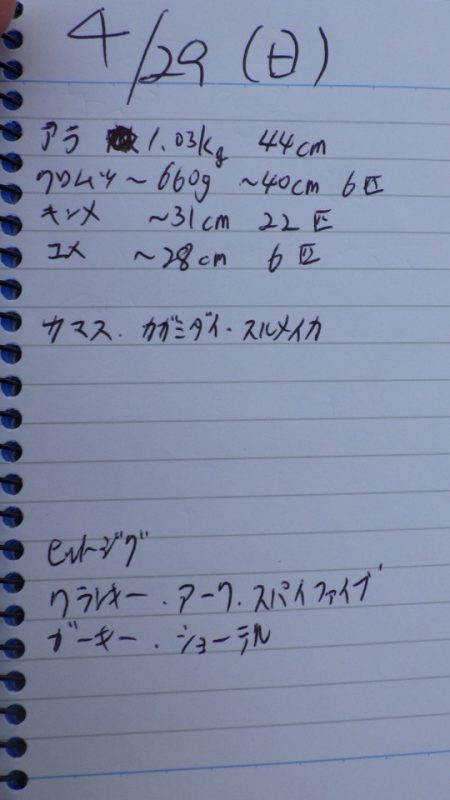 4/29(日)
アラ 1.03kg 44cm
クロムツ ~660g ~40cm 6匹
キンメ ~31cm 22匹
ユメ ~28cm 6匹
カマス・カガミダイ・スルメイカ
ヒットジグ
クランキー・アーク・スパイファイブ
ガーキー・ショーテル